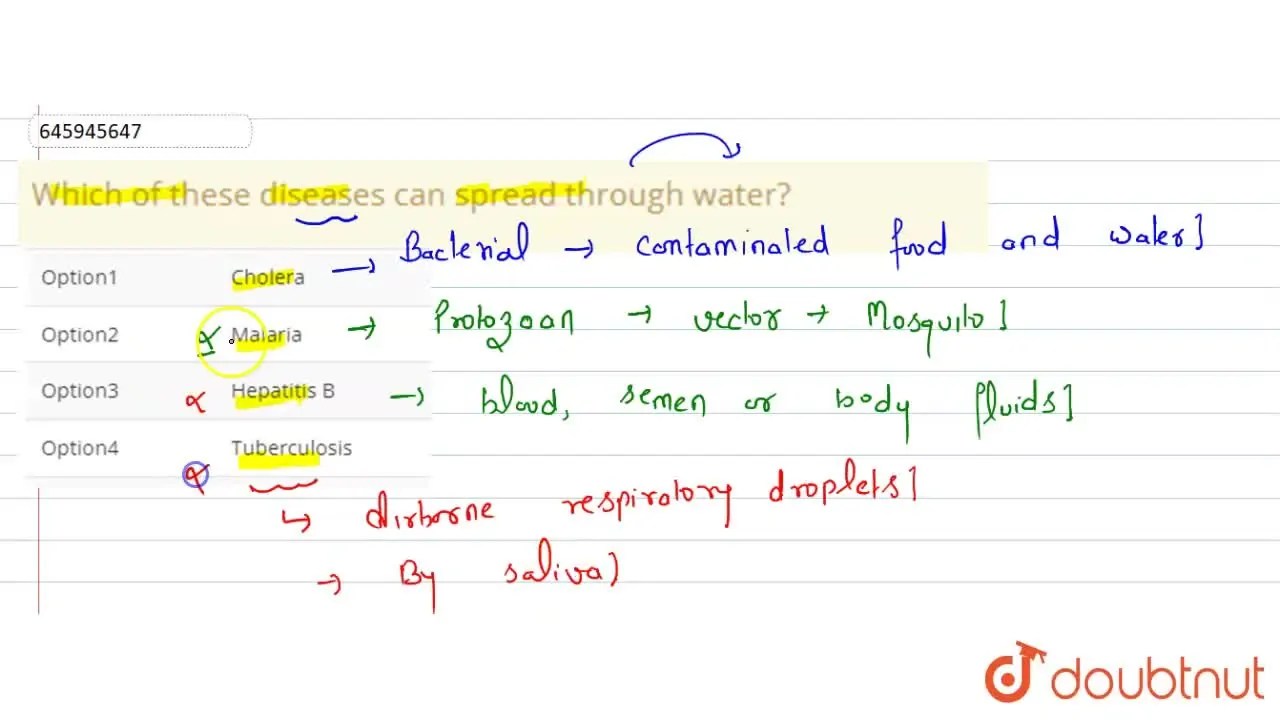 645945647
Which of these diseases can spread through water?
Option1 Cholera → Bacterial → contaminated food and water]
Option2 x Malaria → Protozoan → vector → Mosquito]
Option3 x Hepatitis B → blood, semen or body fluids]
Option4 x Tuberculosis
↳ Airborne respiratory droplets]
→ By saliva)
doubtnut